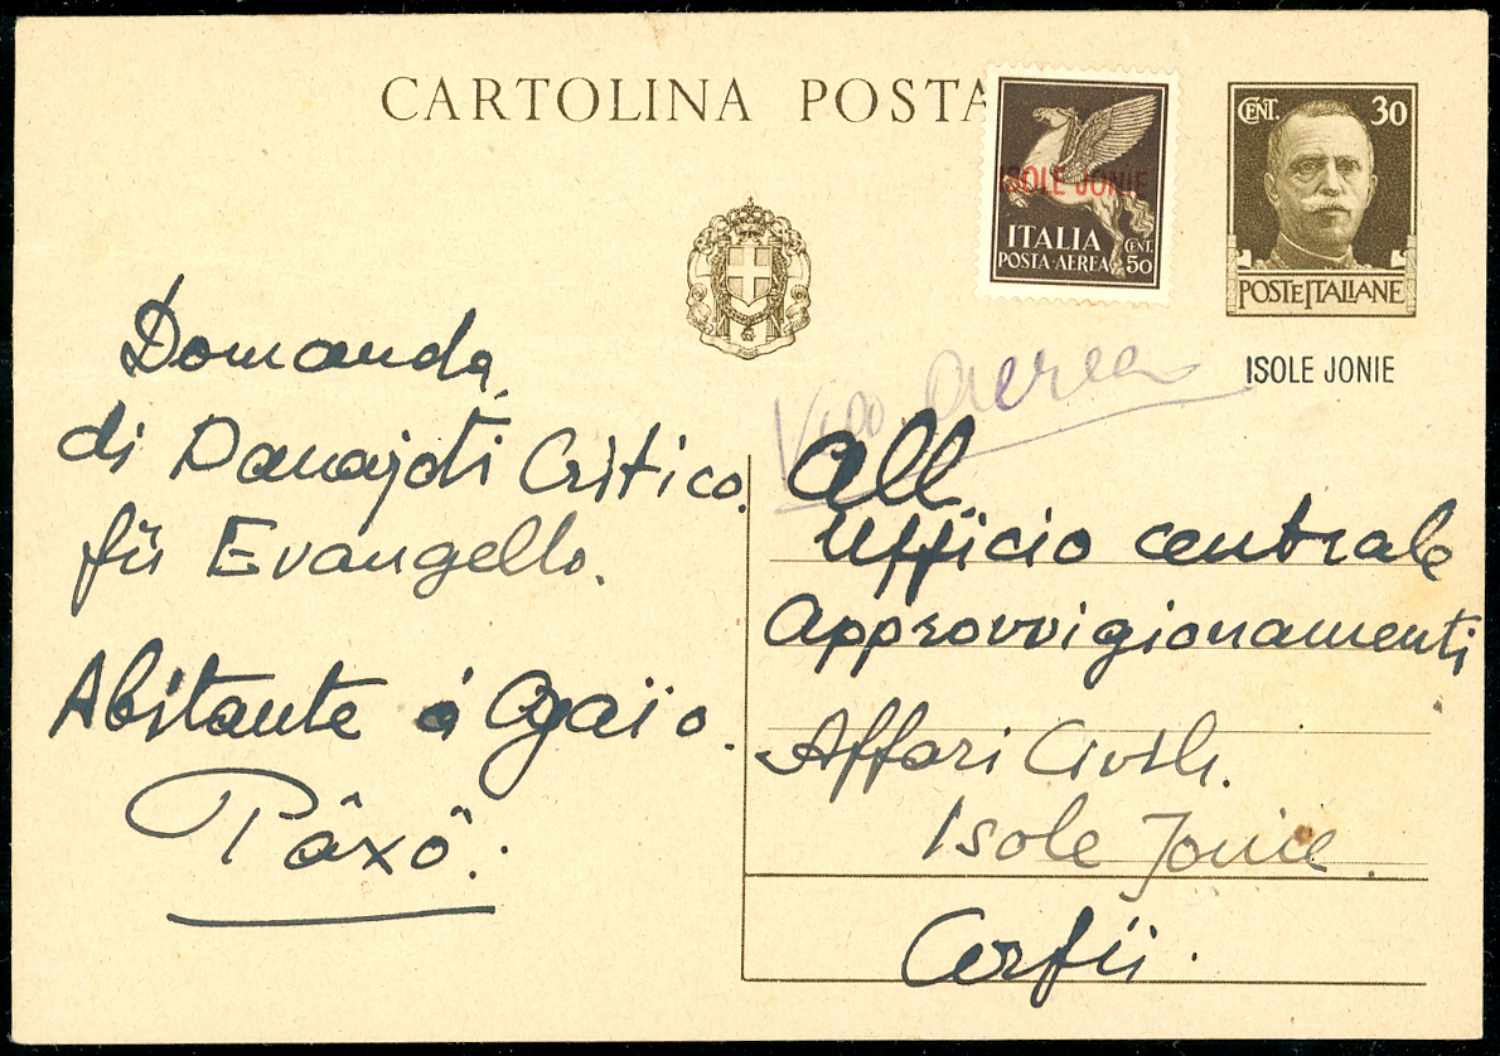 CARTOLINA POSTA
CENT. 30
ISOLE JONIE
ITALIA
POSTA-AEREA
CENT. 50
POSTE ITALIANE
ISOLE JONIE
Via aerea
Domanda,
di Panajoti Critico.
fù Evangello.
Abitante á Ogaïo.
Pâxô.
All
Ufficio centrale
Approvvigionamenti
Affari Civili.
Isole Jonie.
Corfù.